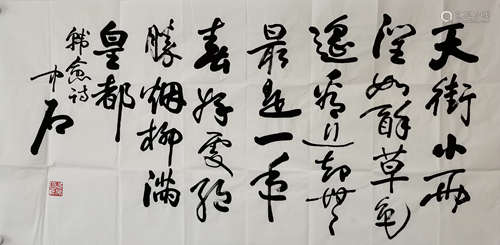 天街小雨
润如酥草色
遥看近却无
最是一年
春好处绝
胜烟柳满
皇都
韩愈诗
中石